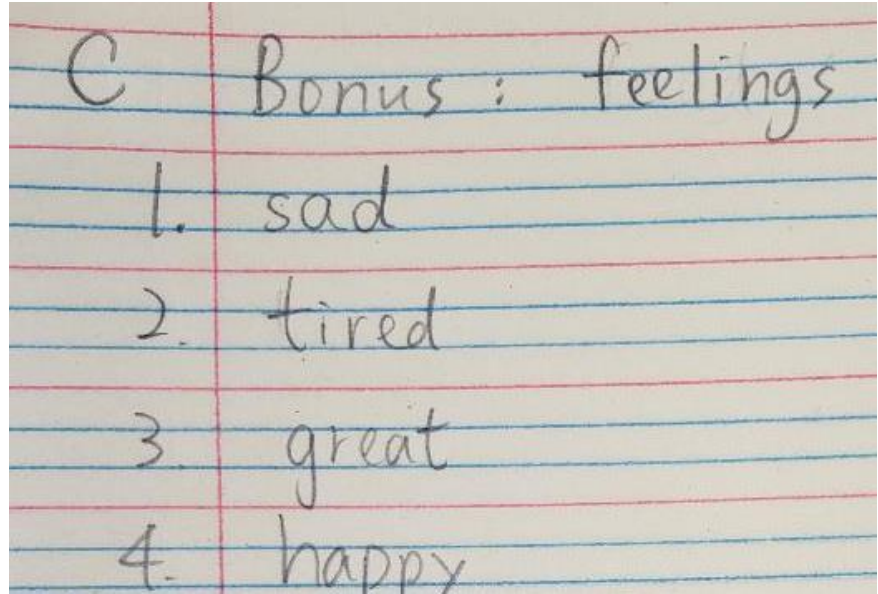 C Bonus : feelings
1. sad
2. tired
3. great
4. happy